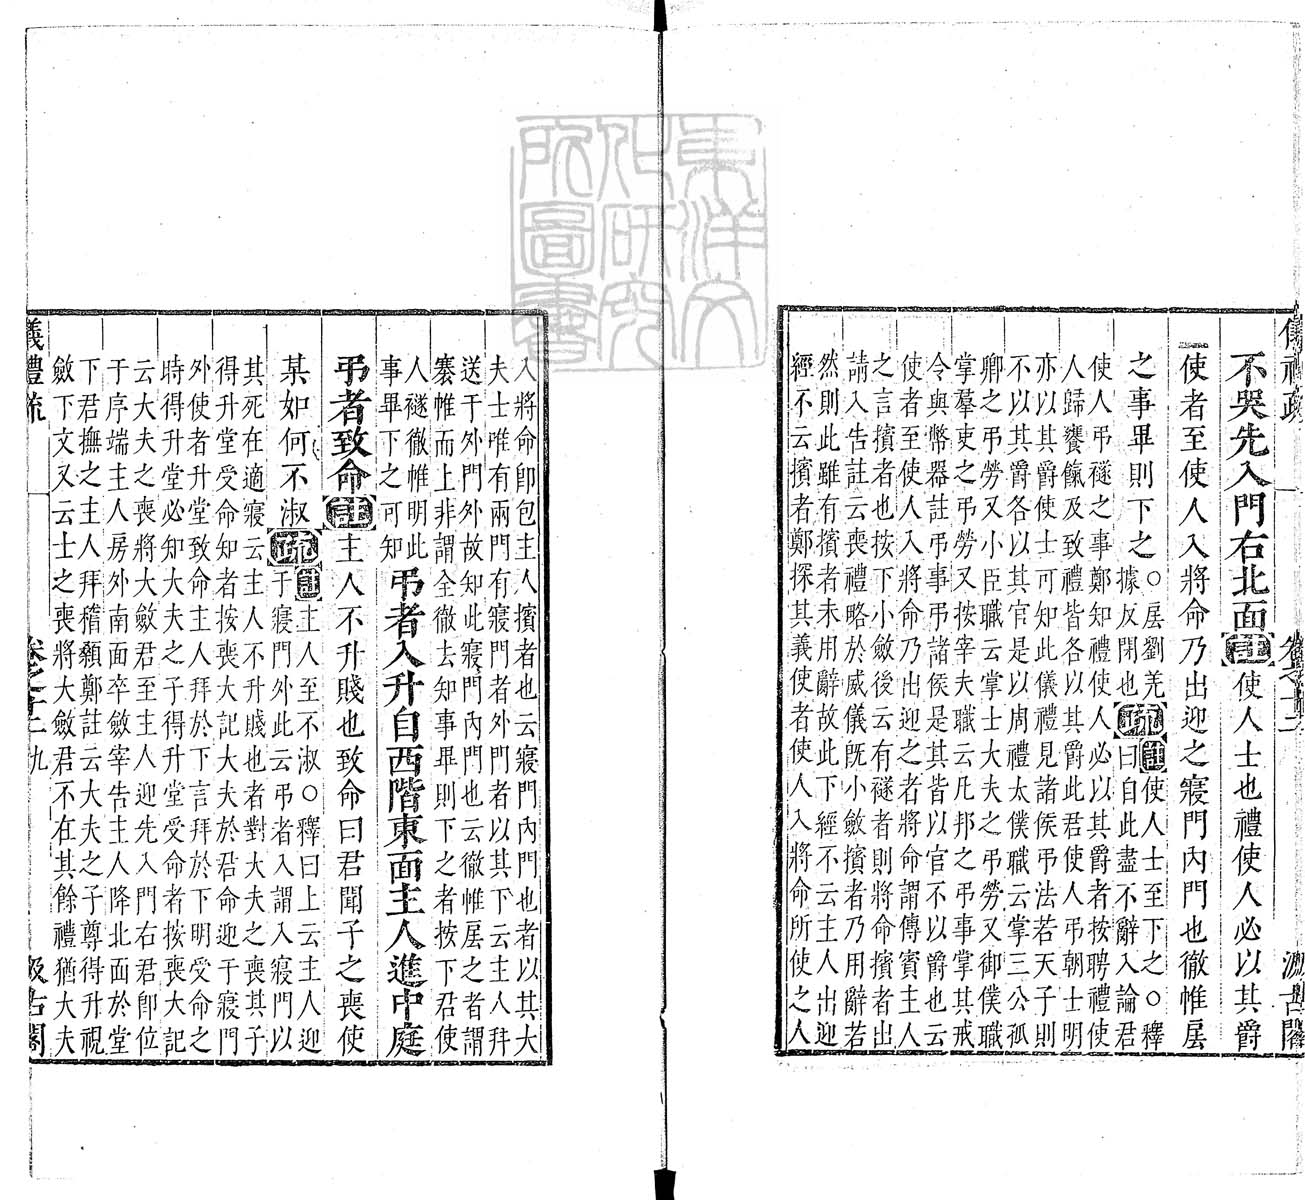 儀禮疏
卷之十二
汲古閣
不哭先入門右北面註使人士也禮使人必以其爵
使者至使人入將命乃出迎之寢門內門也徹帷㞐
之事畢則下之○㞐劉羌
據反閉也疏曰自此盡不辭入論君
註使人士至下之○釋
使人弔襚之事鄭知禮使人必以其爵者按聘禮使
人歸饔餼及致禮皆各以其爵此君使人弔朝士明
亦以其爵使士可知此儀禮見諸侯弔法若天子則
不以其爵各以其官是以周禮太僕職云掌三公孤
卿之弔勞又小臣職云掌士大夫之弔勞又御僕職
掌羣吏之弔勞又按宰夫職云凡邦之弔事掌其戒
令與幣器註弔事弔諸侯是其皆以官不以爵也云
使者至使人入將命乃出迎之者將命謂傳賓主人
之言擯者也按下小斂後云有襚者則將命擯者出
請入告註云喪禮略於威儀旣小斂擯者乃用辭若
然則此雖有擯者未用辭故此下經不云主人出迎
經不云擯者鄭探其義使者使人入將命所使之人
入將命卽包主人擯者也云寢門內門也者以其大
夫士唯有兩門有寢門者外門者以其下云主人拜
送于外門外故知此寢門內門也云徹帷㞐之者謂
褰帷而上非謂全徹去知事畢則下之者按下君使
人襚徹帷明此
事畢下之可知弔者入升自西階東面主人進中庭
弔者致命註主人不升賤也致命曰君聞子之喪使
某如何不淑疏註主人至不淑○釋曰上云主人迎
于寢門外此云弔者入謂入寢門以
其死在適寢云主人不升賤也者對大夫之喪其子
得升堂受命知者按喪大記大夫於君命迎于寢門
外使者升堂致命主人拜於下言拜於下明受命之
時得升堂必知大夫之子得升堂受命者按喪大記
云大夫之喪將大斂君至主人迎先入門右君卽位
于序端主人房外南面卒斂宰告主人降北面於堂
下君撫之主人拜稽顙鄭註云大夫之子尊得升視
斂下文又云士之喪將大斂君不在其餘禮猶大夫
儀禮疏
卷之十二
九
汲古閣
東洋文
化研究
所圖書